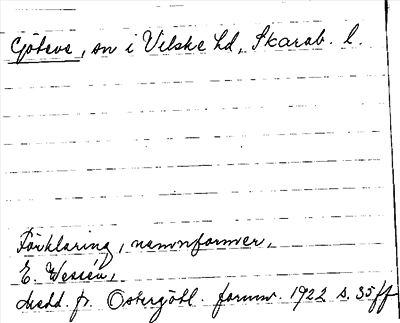 Göteve, sn i Vilske hd., Skarab. l.
Förklaring, namnformer,
E. Wessén,
Medd. fr. Östergötl. fornm. 1922 s. 35 ff